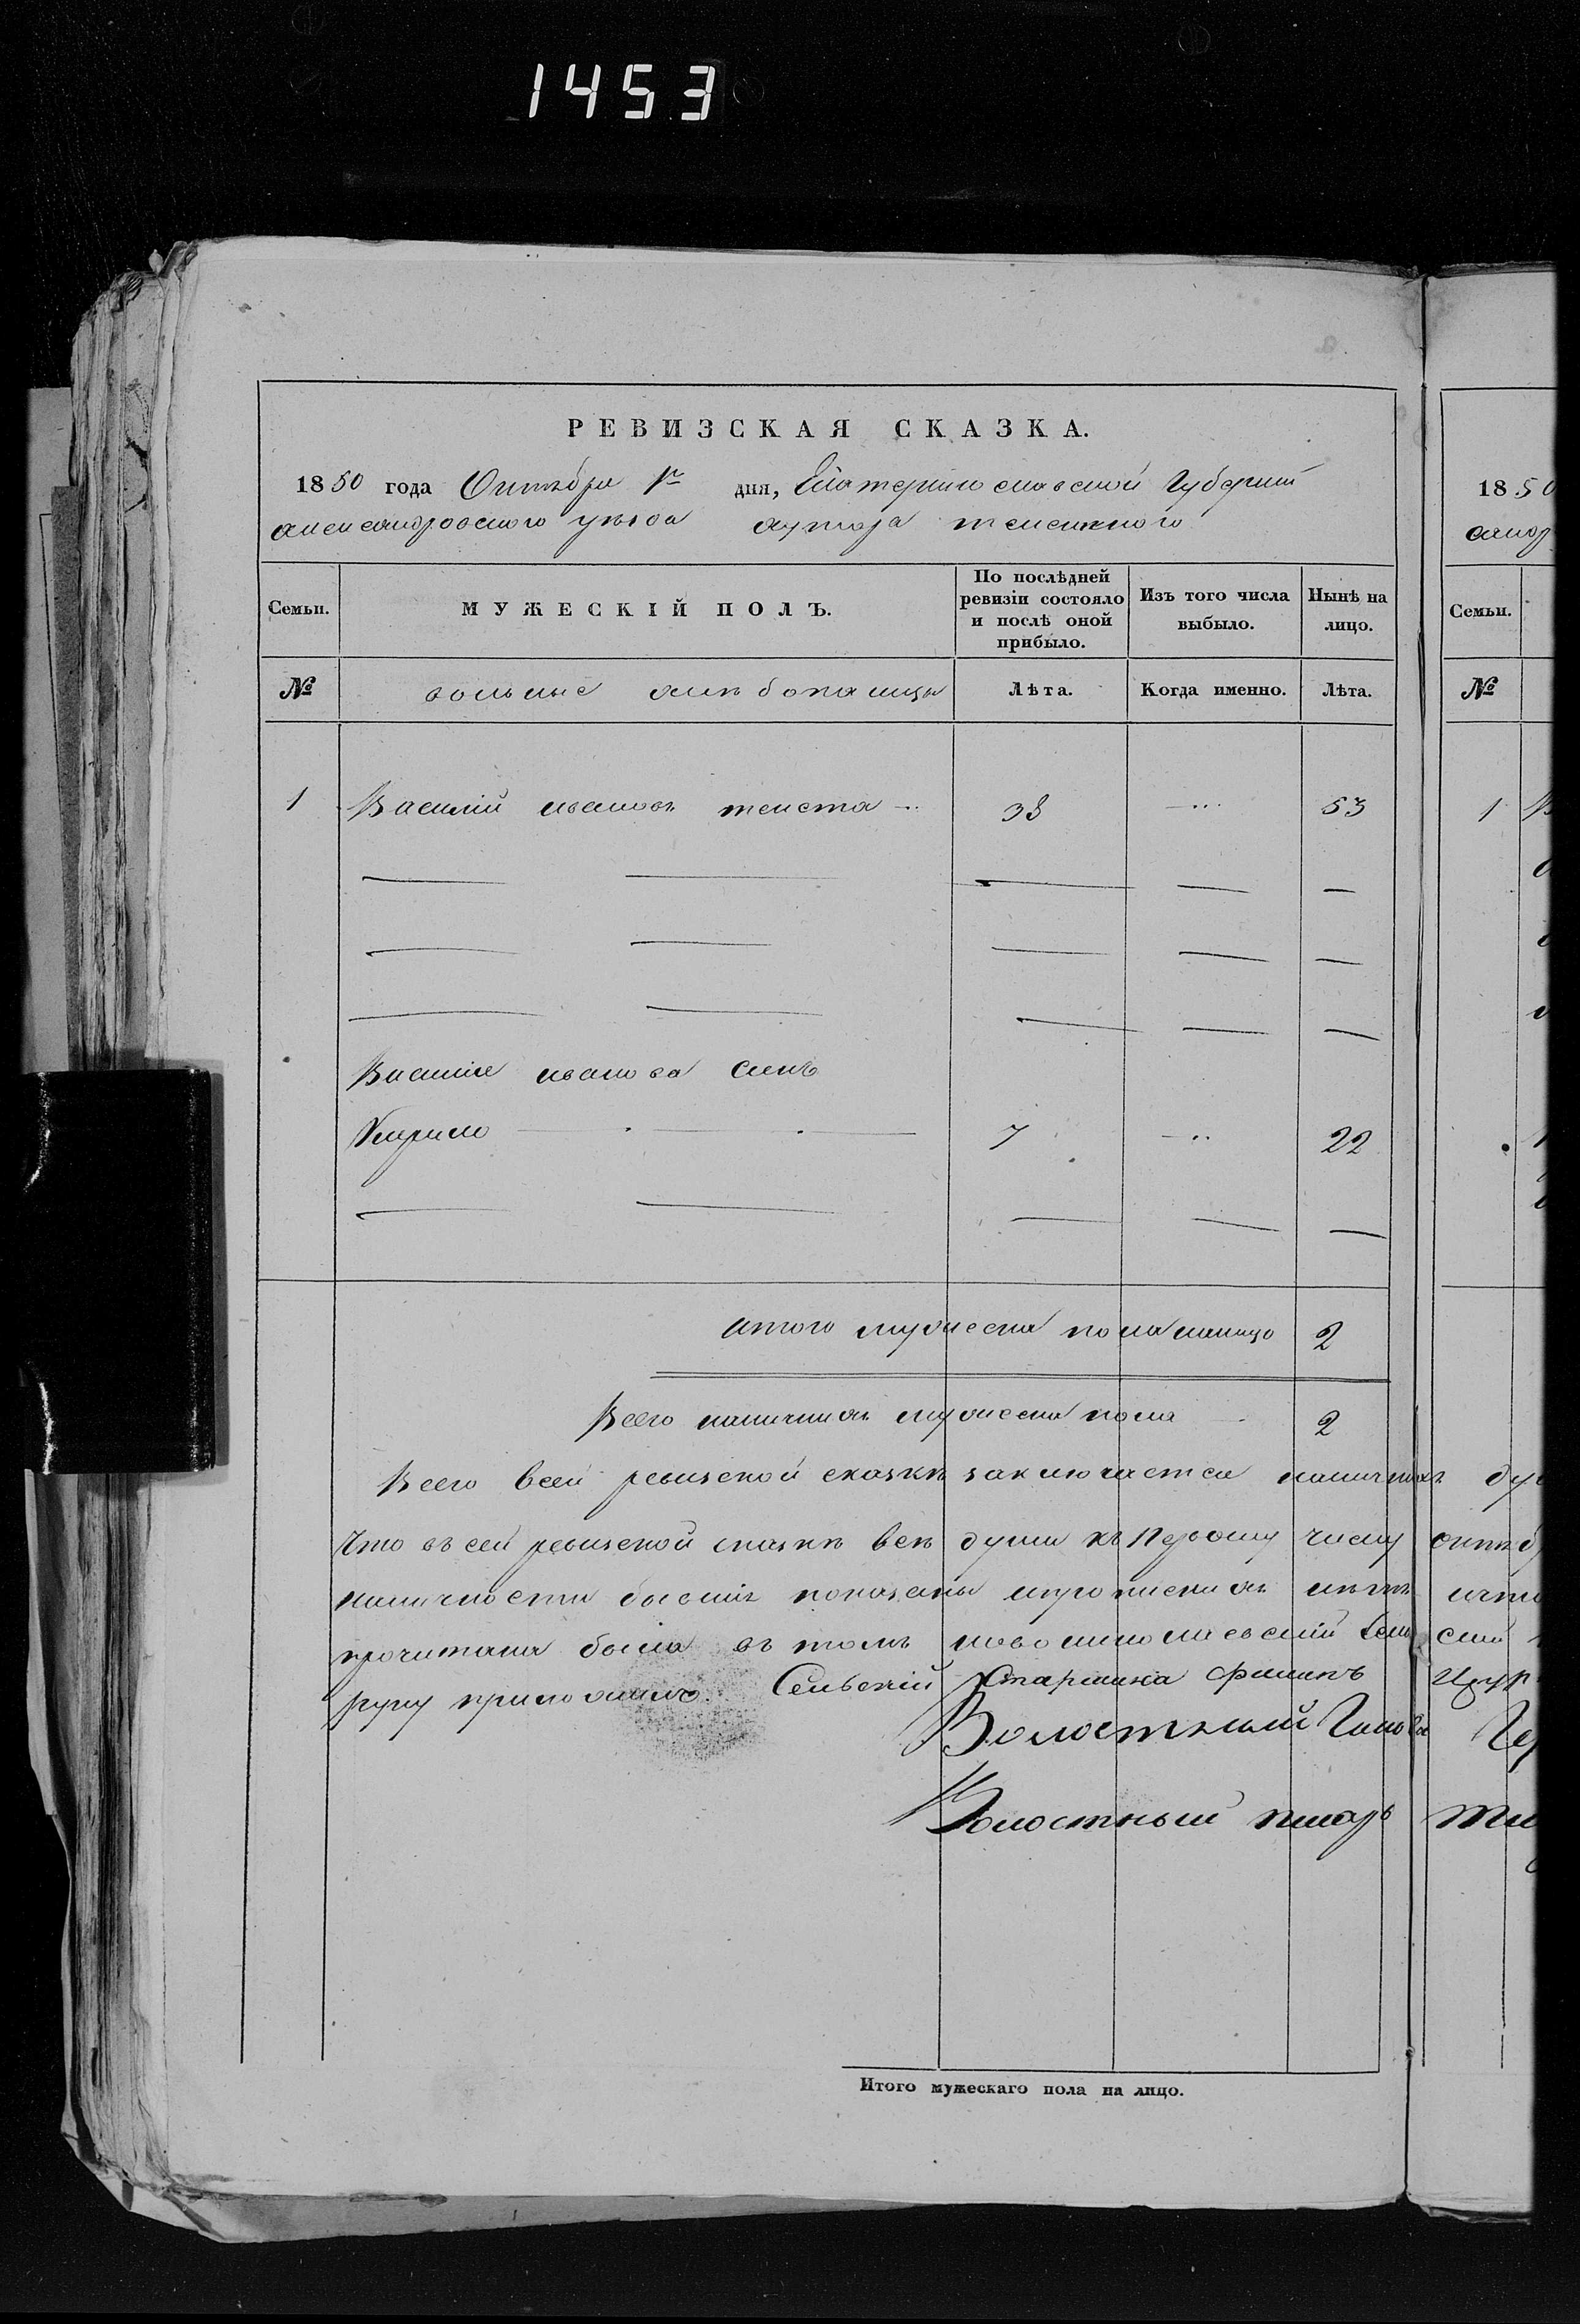 1453
РЕВИЗСКАЯ СКАЗКА.
1850 года Октября 1го дня, Екатеринославской Губернии
александровского уезда хутора
Семьи. МУЖЕСКІЙ ПОЛЪ. По послѣдней ревизіи состояло и послѣ оной прибыло. Изъ того числа выбыло. Нынѣ на лицо.
№ вольные хлебопашцы Лѣта. Когда именно. Лѣта.
1 Василій ивановъ 38 53
Василия иванова синъ
Кирило 7 22
итого мужеска пола налицо 2
Всего наличнихъ мужеска пола 2
Всего всей ревизской сказкѣ заключается наличнихъ
Что въ сей ревизской сказкѣ всѣ души къ Первому числу
наличности бывшие показаны и прописнихъ нѣтъ
прочитана была въ томъ
руку приложилъ. Сельскій Старшина Филипъ
Волостный Голова
Волостный писарь
Итого мужескаго пола на лицо.
1850
Семьи.
№
1